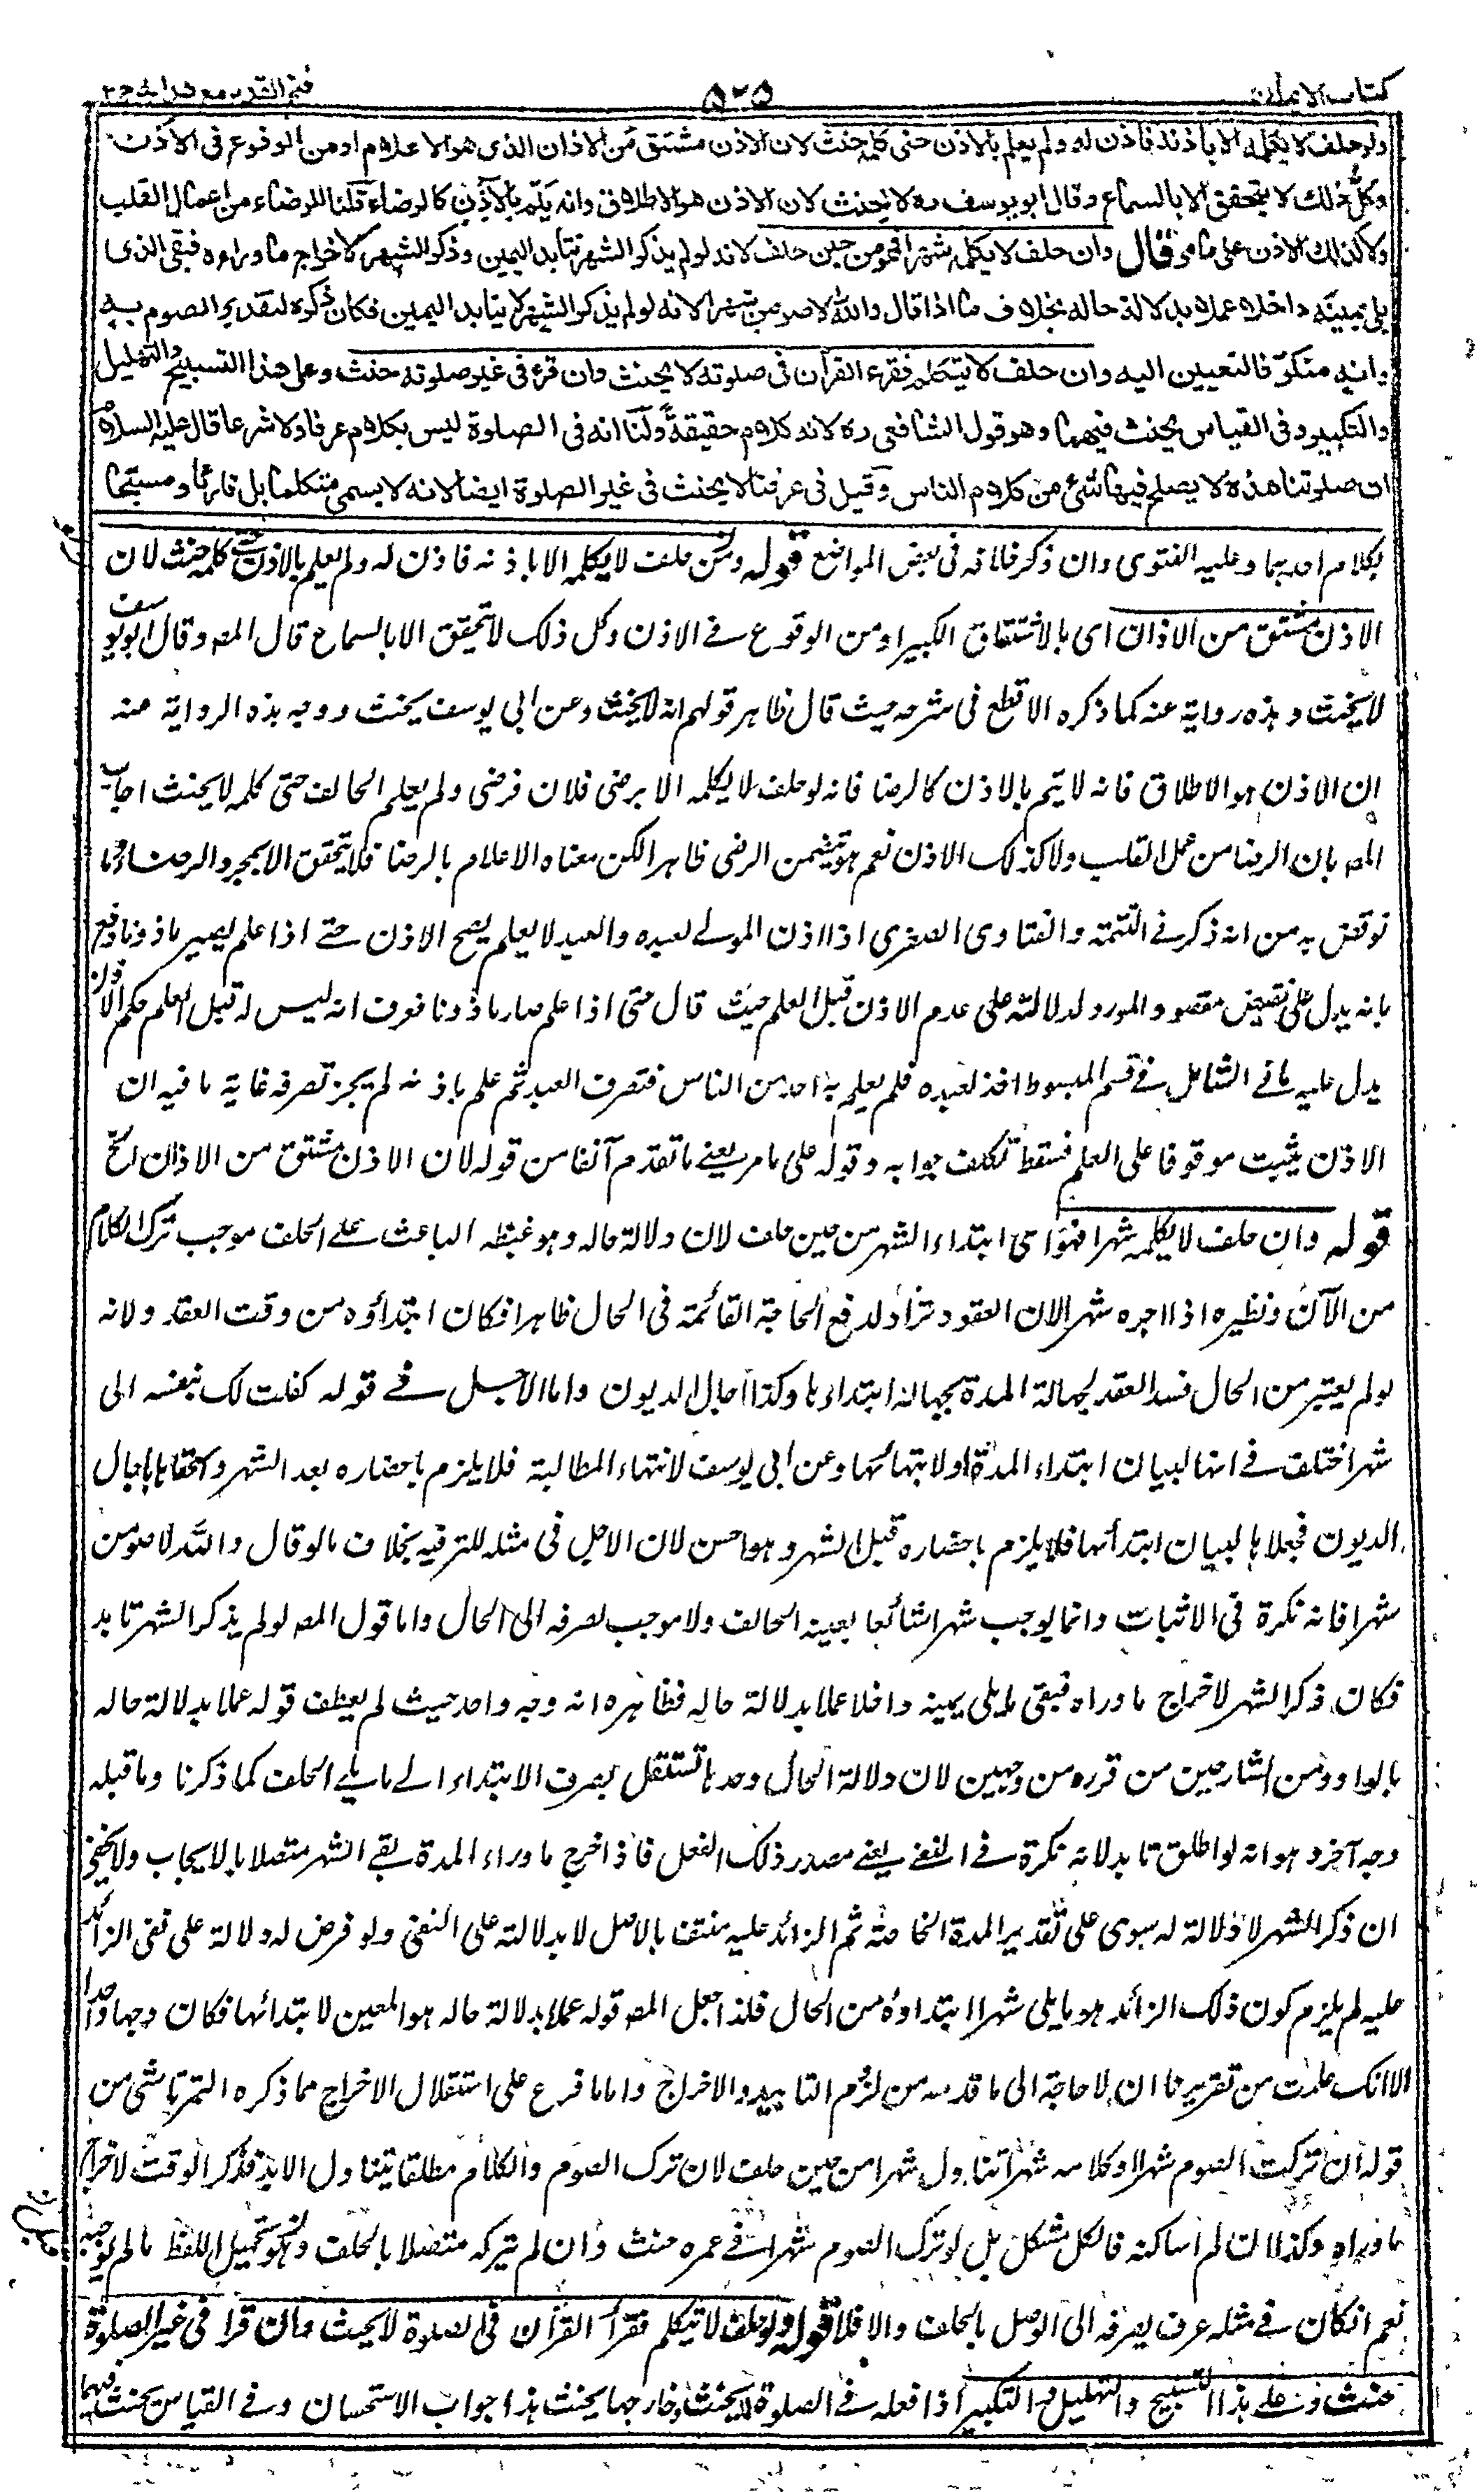 كتاب الايمان
٥٢٥
فتح القدير مع هداية ج ٢
ولو حلف لا يكلمه الا باذنه فاذن له ولم يعلم بالاذن حتى كلمه حنث لان الاذن مشتق من الاذان الذى هو الاعلام او من الوقوع فى الاذن
وكل ذلك لا يتحقق الا بالسماع وقال ابو يوسف ره لا يحنث لان الاذن هو الاطلاق وانه يتم بالاذن كالرضاء قلنا الرضاء من اعمال القلب
ولا كذلك الاذن على ما مر قال وان حلف لا يكلمه شهرا فهو من حين حلف لانه لو لم يذكر الشهر تتابد اليمين وذكر الشهر لاخراج ما وراءه فبقى الذى
يلى يمينه داخلا عملا بدلالة حاله بخلاف ما اذا قال والله لاصومن شهرا لانه لو لم يذكر الشهر لا يتابد اليمين فكان ذكره لتقدير الصوم به
وانه منكر فالتعيين اليه وان حلف لا يتكلم فقرء القرآن فى صلوته لا يحنث وان قرء فى غير صلوته حنث وعلى هذا التسبيح والتهليل
والتكبير وفى القياس يحنث فيهما وهو قول الشافعى ره لانه كلام حقيقة ولنا انه فى الصلوة ليس بكلام عرفا ولا شرعا قال عليه السلام
ان صلوتنا هذه لا يصلح فيها شئ من كلام الناس وقيل فى عرفنا لا يحنث فى غير الصلوة ايضا لانه لا يسمى متكلما بل قارئا ومسبحا
بكلام احدهما وعليه الفتوى وان ذكر خلافه فى بعض المواضع قوله ومن حلف لا يكلمه الا باذنه فاذن له ولم يعلم بالاذن حتى كلمه حنث لان
الاذن مشتق من الاذان اى بالاشتقاق الكبير او من الوقوع فى الاذن وكل ذلك لا يتحقق الا بالسماع قال المص وقال ابو يوسف
لا يحنث وهذه رواية عنه كما ذكره الاقطع فى شرحه حيث قال ظاهر قولهم انه لا يحنث وعن ابى يوسف يحنث ووجه هذه الرواية عنه
ان الاذن هو الاطلاق فانه لا يتم بالاذن كالرضا فانه لو حلف لا يكلمه الا برضى فلان فرضى ولم يعلم الحالف حتى كلمه لا يحنث اجاب
المص بان الرضا من عمل القلب ولا كذلك الاذن نعم هو يتضمن الرضى ظاهرا لكن معناه الاعلام بالرضا فلا يتحقق الا بمجرد الرضا وما
نوقض به من انه ذكر فى التتمة والفتاوى الصغرى اذا اذن المولى لعبده والعبد لا يعلم يصح الاذن حتى اذا علم يصير ماذونا دفع
بانه يدل على نقيض مقصود المورد لدلالته على عدم الاذن قبل العلم حيث قال حتى اذا علم صار ماذونا فعرف انه ليس له قبل العلم حكم الاذن
يدل عليه ما فى الشامل فى قسم المبسوط اذن لعبده فلم يعلم به احد من الناس فتصرف العبد ثم علم باذنه لم يجز تصرفه غاية ما فيه ان
الاذن يثبت موقوفا على العلم فسقط تكلف جوابه وقوله على ما مر يعنى ما تقدم آنفا من قوله لان الاذن مشتق من الاذان الخ
قوله وان حلف لا يكلمه شهرا فهو اى ابتداء الشهر من حين حلف لان دلالة حاله وهو غيظه الباعث على الحلف موجب ترك الكلام
من الآن ونظيره اذا اجره شهرا لان العقود تراد لدفع الحاجة القائمة فى الحال ظاهرا فكان ابتداؤه من وقت العقد ولانه
لو لم يعتبر من الحال فسد العقد لجهالة المدة بجهالة ابتداءها وكذا آجال الديون واما الاجل فى قوله كفلت لك بنفسه الى
شهر اختلف فى انها لبيان ابتداء المدة او لانتهائها وعن ابى يوسف لانتهاء المطالبة فلا يلزم باحضاره بعد الشهر والحقاها باجال
الديون فجعلاها لبيان ابتدائها فلا يلزم باحضاره قبل الشهر وهو احسن لان الاجل فى مثله للترفيه بخلاف ما لو قال والله لاصومن
شهرا فانه نكرة فى الاثبات وانما يوجب شهرا شائعا بعينه الحالف ولا موجب لصرفه الى الحال واما قول المص لو لم يذكر الشهر تابد
فكان ذكر الشهر لاخراج ما وراه فبقى ما يلى يمينه داخلا عملا بدلالة حاله فظاهره انه وجه واحد حيث لم يعطف قوله عملا بدلالة حاله
بالواو ومن الشارحين من قرره من وجهين لان دلالة الحال وحدها تستقل بصرف الابتداء الى ما يلى الحلف كما ذكرنا وما قبله
وجه آخر وهو انه لو اطلق تابد لانه نكرة فى النفى يعنى مصدر ذلك الفعل فاذا خرج ما وراء المدة بقى الشهر متصلا بالايجاب ولا يخفى
ان ذكر الشهر لا دلالة له سوى على تقدير المدة الخاصة ثم الزائد عليه منتف بالاصل لا بدلالته على النفى ولو فرض له دلالة على نفى الزائد
عليه لم يلزم كون ذلك الزائد هو ما يلى شهرا ابتداؤه من الحال فلذا جعل المص قوله عملا بدلالة حاله هو المعين لابتدائها فكان وجها واحدا
الا انك علمت من تقريرنا ان لا حاجة الى ما قدمه من لزوم التابيد والاخراج واما ما فرع على استقلال الاخراج مما ذكره التمرتاشى من
قوله ان تركت الصوم شهرا او كلامه شهرا تناول شهرا من حين حلف لان ترك الصوم والكلام مطلقا يتناول الابد فذكر الوقت لاخراج
ما وراه وكذا ان لم اساكنه فالكل مشكل بل لو ترك الصوم شهرا فى عمره حنث وان لم يتركه متصلا بالحلف اللفظ ما لم
نعم ان كان فى مثله عرف يصرفه الى الوصل بالحلف والا فلا قوله ولو حلف لا يتكلم فقرأ القرآن فى الصلوة لا يحنث وان قرا فى غير الصلوة
حنث وعلى هذا التسبيح والتهليل والتكبير اذا فعله فى الصلوة لا يحنث وخارجها يحنث هذا جواب الاستحسان وفى القياس يحنث فيهما